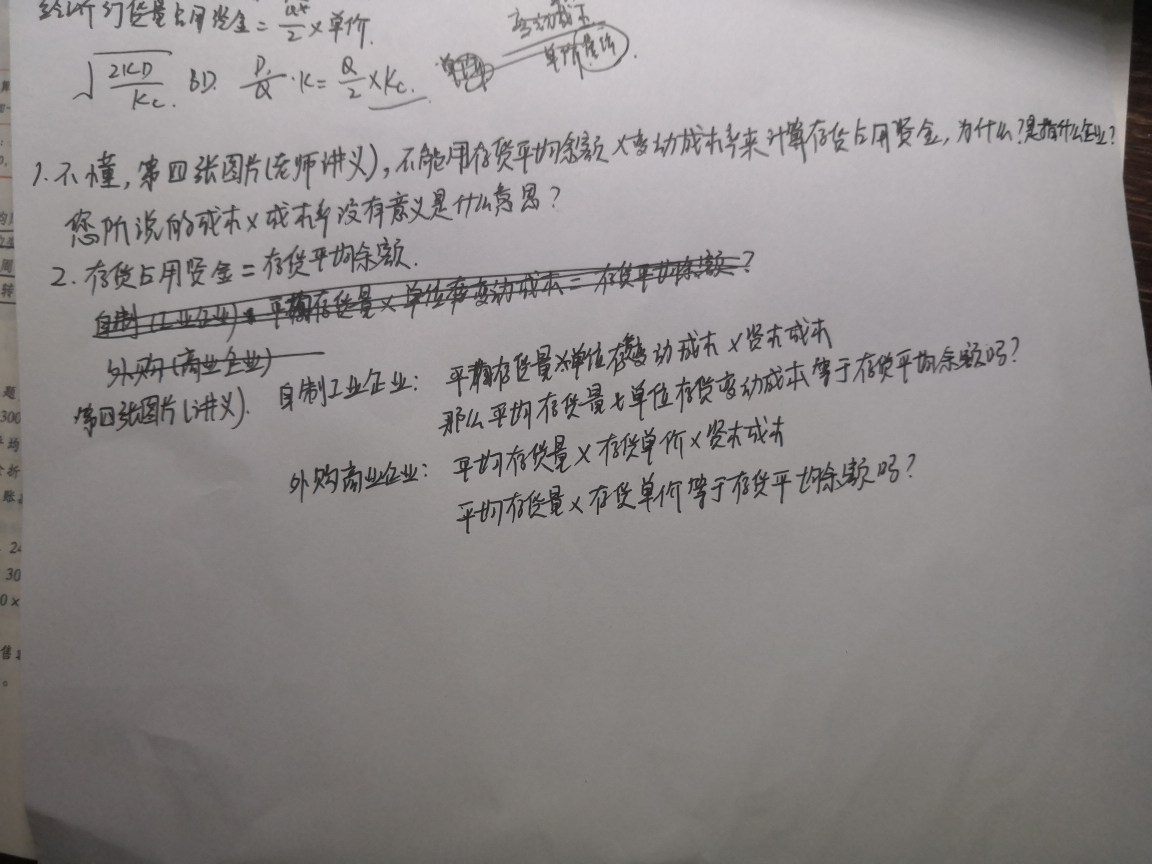 经济订货量占用资金 = Q*/2 × 单价.
变动成本
单价
√(2KD/Kc). BD. D/Q · K = Q/2 × Kc.
1. 不懂, 第四张图片(老师讲义), 不能用存货平均余额 × 变动成本率来计算存货占用资金, 为什么? 是指什么企业?
您所说的成本 × 成本率没有意义是什么意思?
2. 存货占用资金 = 存货平均余额.
自制(工业企业): 平均存货量 × 单位变动成本 = 存货平均余额?
外购(商业企业)
第四张图片(讲义). 自制工业企业: 平均存货量 × 单位存货变动成本 × 资本成本
那么平均存货量 × 单位存货变动成本等于存货平均余额吗?
外购商业企业: 平均存货量 × 存货单价 × 资本成本
平均存货量 × 存货单价等于存货平均余额吗?
题
300
平均
分析
账
24
30
0×
售
。